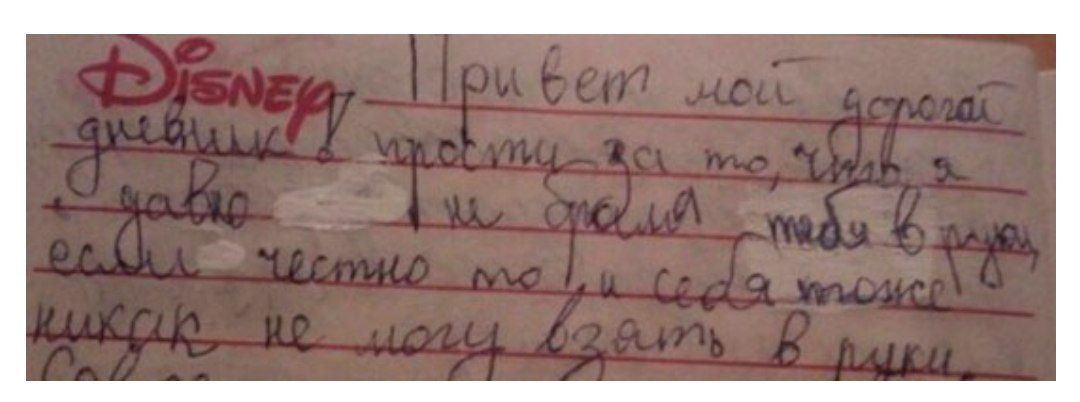 DISNEY Привет мой дорогой
дневник! прости за то, что я
давно не брала тебя в руки,
если честно то, и себя тоже
никак не могу взять в руки.